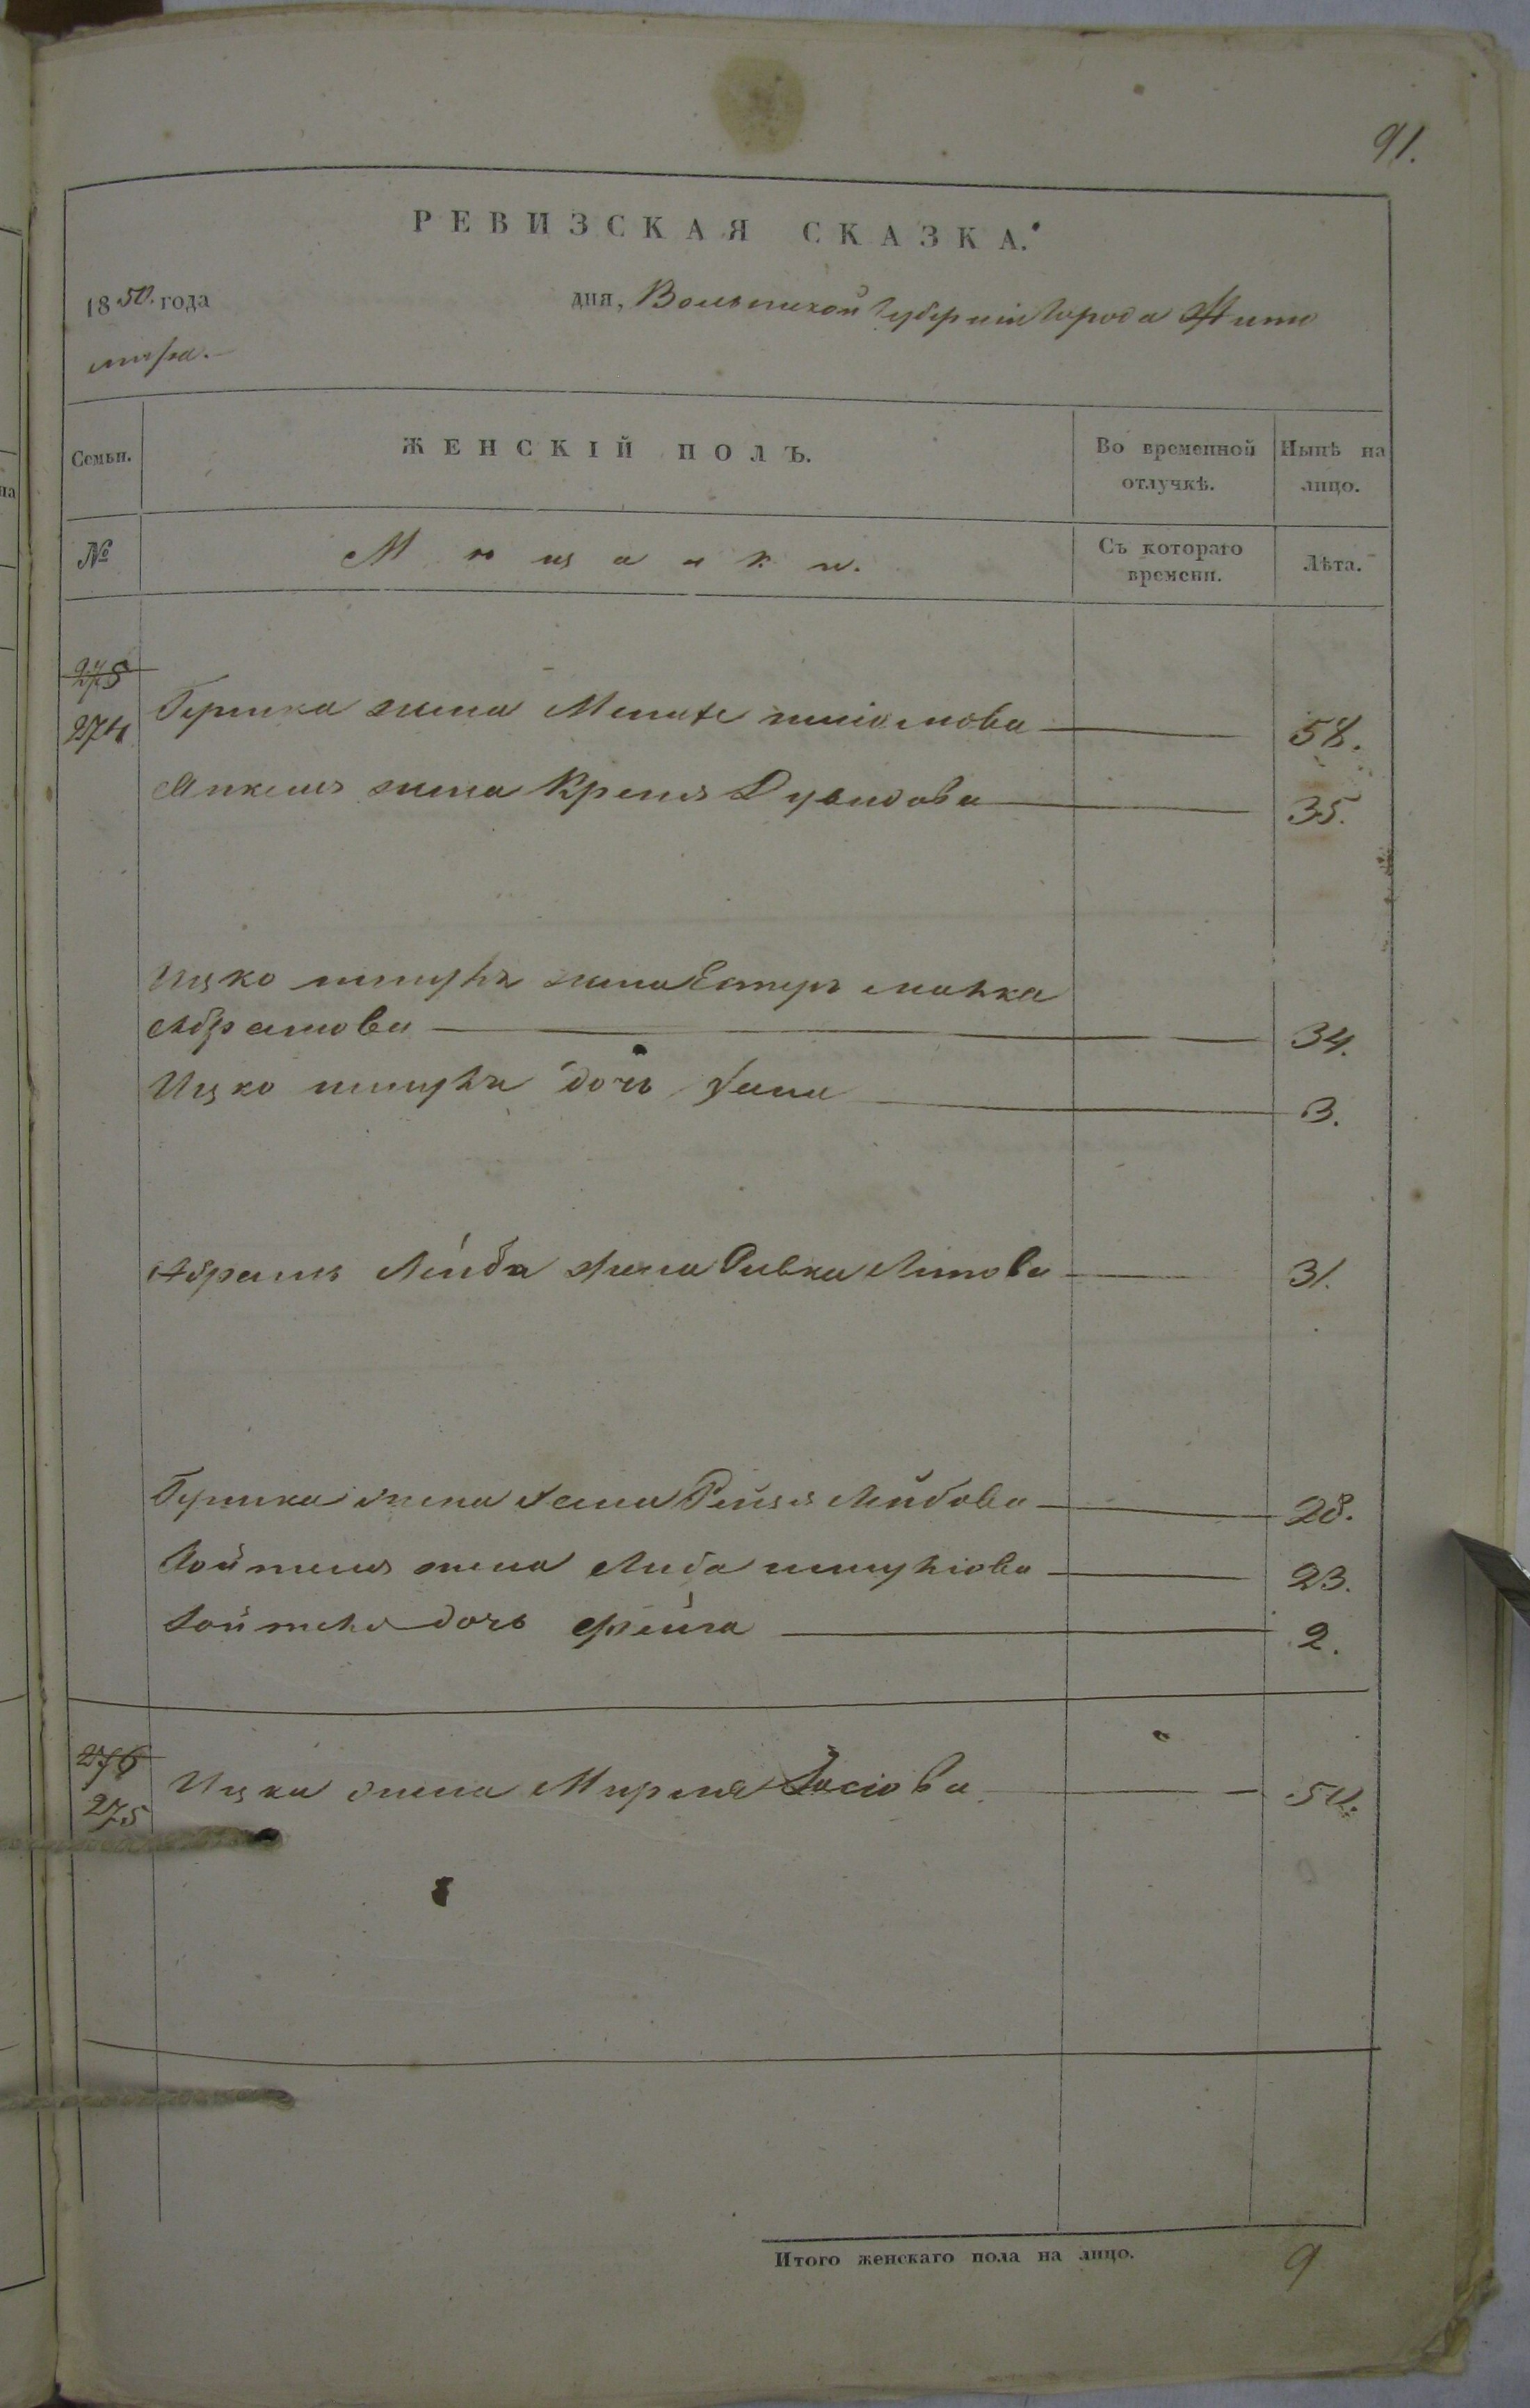 91.
РЕВИЗСКАЯ СКАЗКА.
1850. года дня, Волынской Губерніи Города Жито
мира.
Семьи. ЖЕНСКІЙ ПОЛЪ. Во временной отлучкѣ. Нынѣ на лицо.
№ Мѣщанки. Съ котораго времени. Лѣта.
275
274 Гершка жена 58.
жена Крейня Дувидова 35.
Ицко жена Естеръ малка
Абрамова 34.
Ицко дочь Хана 3.
Абрамъ Лейба жена Ривка 31.
Гершка жена Хана Рейзя Лейбова 28.
жена Либа 23.
дочь Фейга 2.
276
275 Ицка жена Мирля Іосіова 50.
Итого женскаго пола на лицо. 9